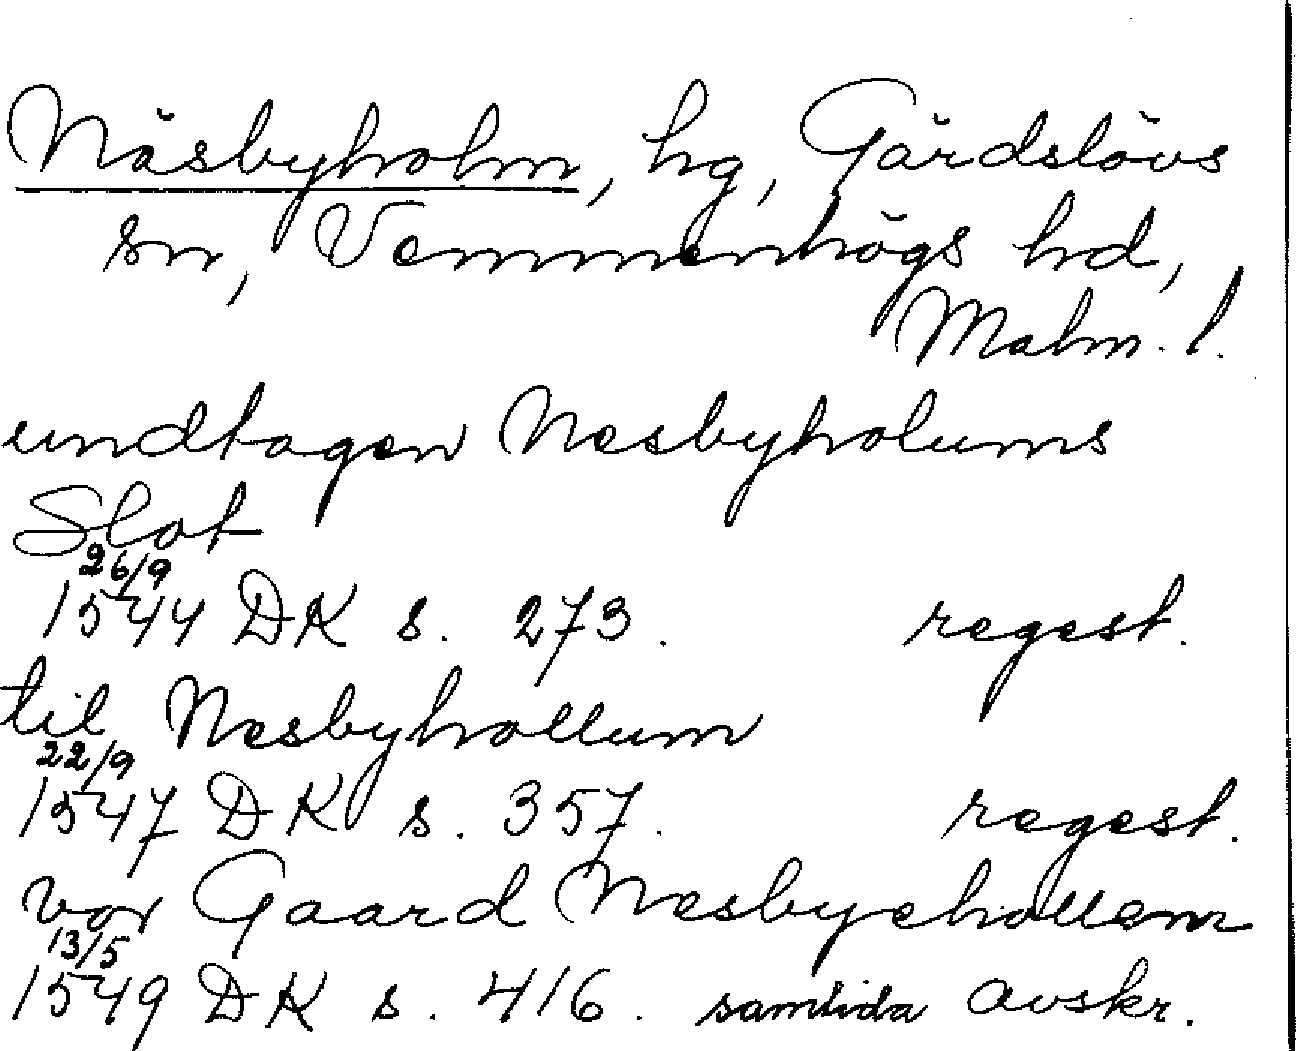 Näsbyholm, hg, Gärdslövs
sn, Vemmenhögs hd,
Malm. l.
undtagen Nesbyholums
Slot
26/9
1544 DK s. 273. regest.
til Nesbyhollum
22/9
1547 DK s. 357. regest.
vor Gaard Nesbyehollem
13/5
1549 DK s. 416. samtida avskr.